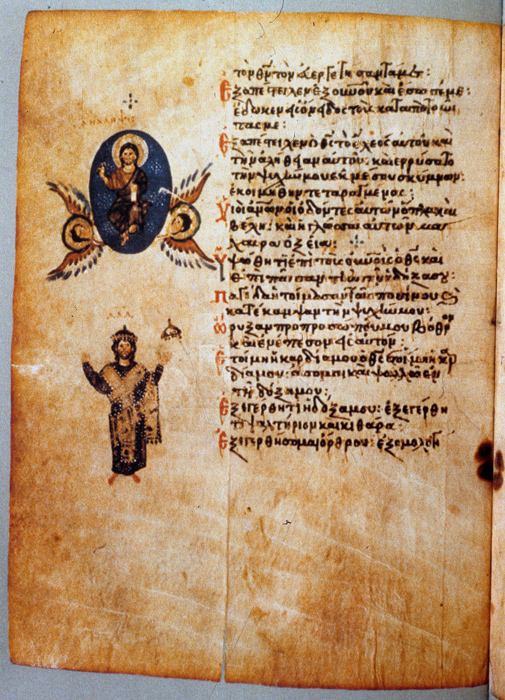 ἀνάληψις
δαδ
τὸν θν τὸν εὐεργετήσαντά με:
Ἐξαπέστειλεν ἐξ οὐνοῦ καὶ ἔσωσέ με:
ἔδωκεν εἰς ὄνειδος τοὺς καταπατοῦν
τάς με:
Ἐξαπέστειλεν ὁ θς τὸ ἔλεος αὐτοῦ καὶ
τὴν ἀλήθειαν αὐτοῦ, καὶ ἐρρύσατο
τὴν ψυχήν μου ἐκ μέσου σκύμνων:
ἐκοιμήθην τεταραγμένος:
Υἱοὶ ἀνων οἱ ὀδόντες αὐτῶν ὅπλα καὶ
βέλη: καὶ ἡ γλῶσσα αὐτῶν μά
χαιρα ὀξεῖα:
Ὑψώθητι ἐπὶ τοὺς οὐνοὺς ὁ θς καὶ
ἐπὶ πᾶσαν τὴν γῆν ἡ δόξα σου:
Παγίδα ἡτοίμασαν τοῖς ποσίν μου καὶ
κατέκαμψαν τὴν ψυχήν μου:
Ὤρυξαν πρὸ προσώπου μου βόθρον
καὶ ἐνέπεσον εἰς αὐτόν:
Ἑτοίμη ἡ καρδία μου ὁ θς ἑτοίμη ἡ καρ
δία μου: ᾄσομαι καὶ ψαλῶ ἐν
τῇ δόξῃ μου:
Ἐξεγέρθητι ἡ δόξα μου: ἐξεγέρθη
τι ψαλτήριον καὶ κιθάρα:
Ἐξεγερθήσομαι ὄρθρου: ἐξομολογή